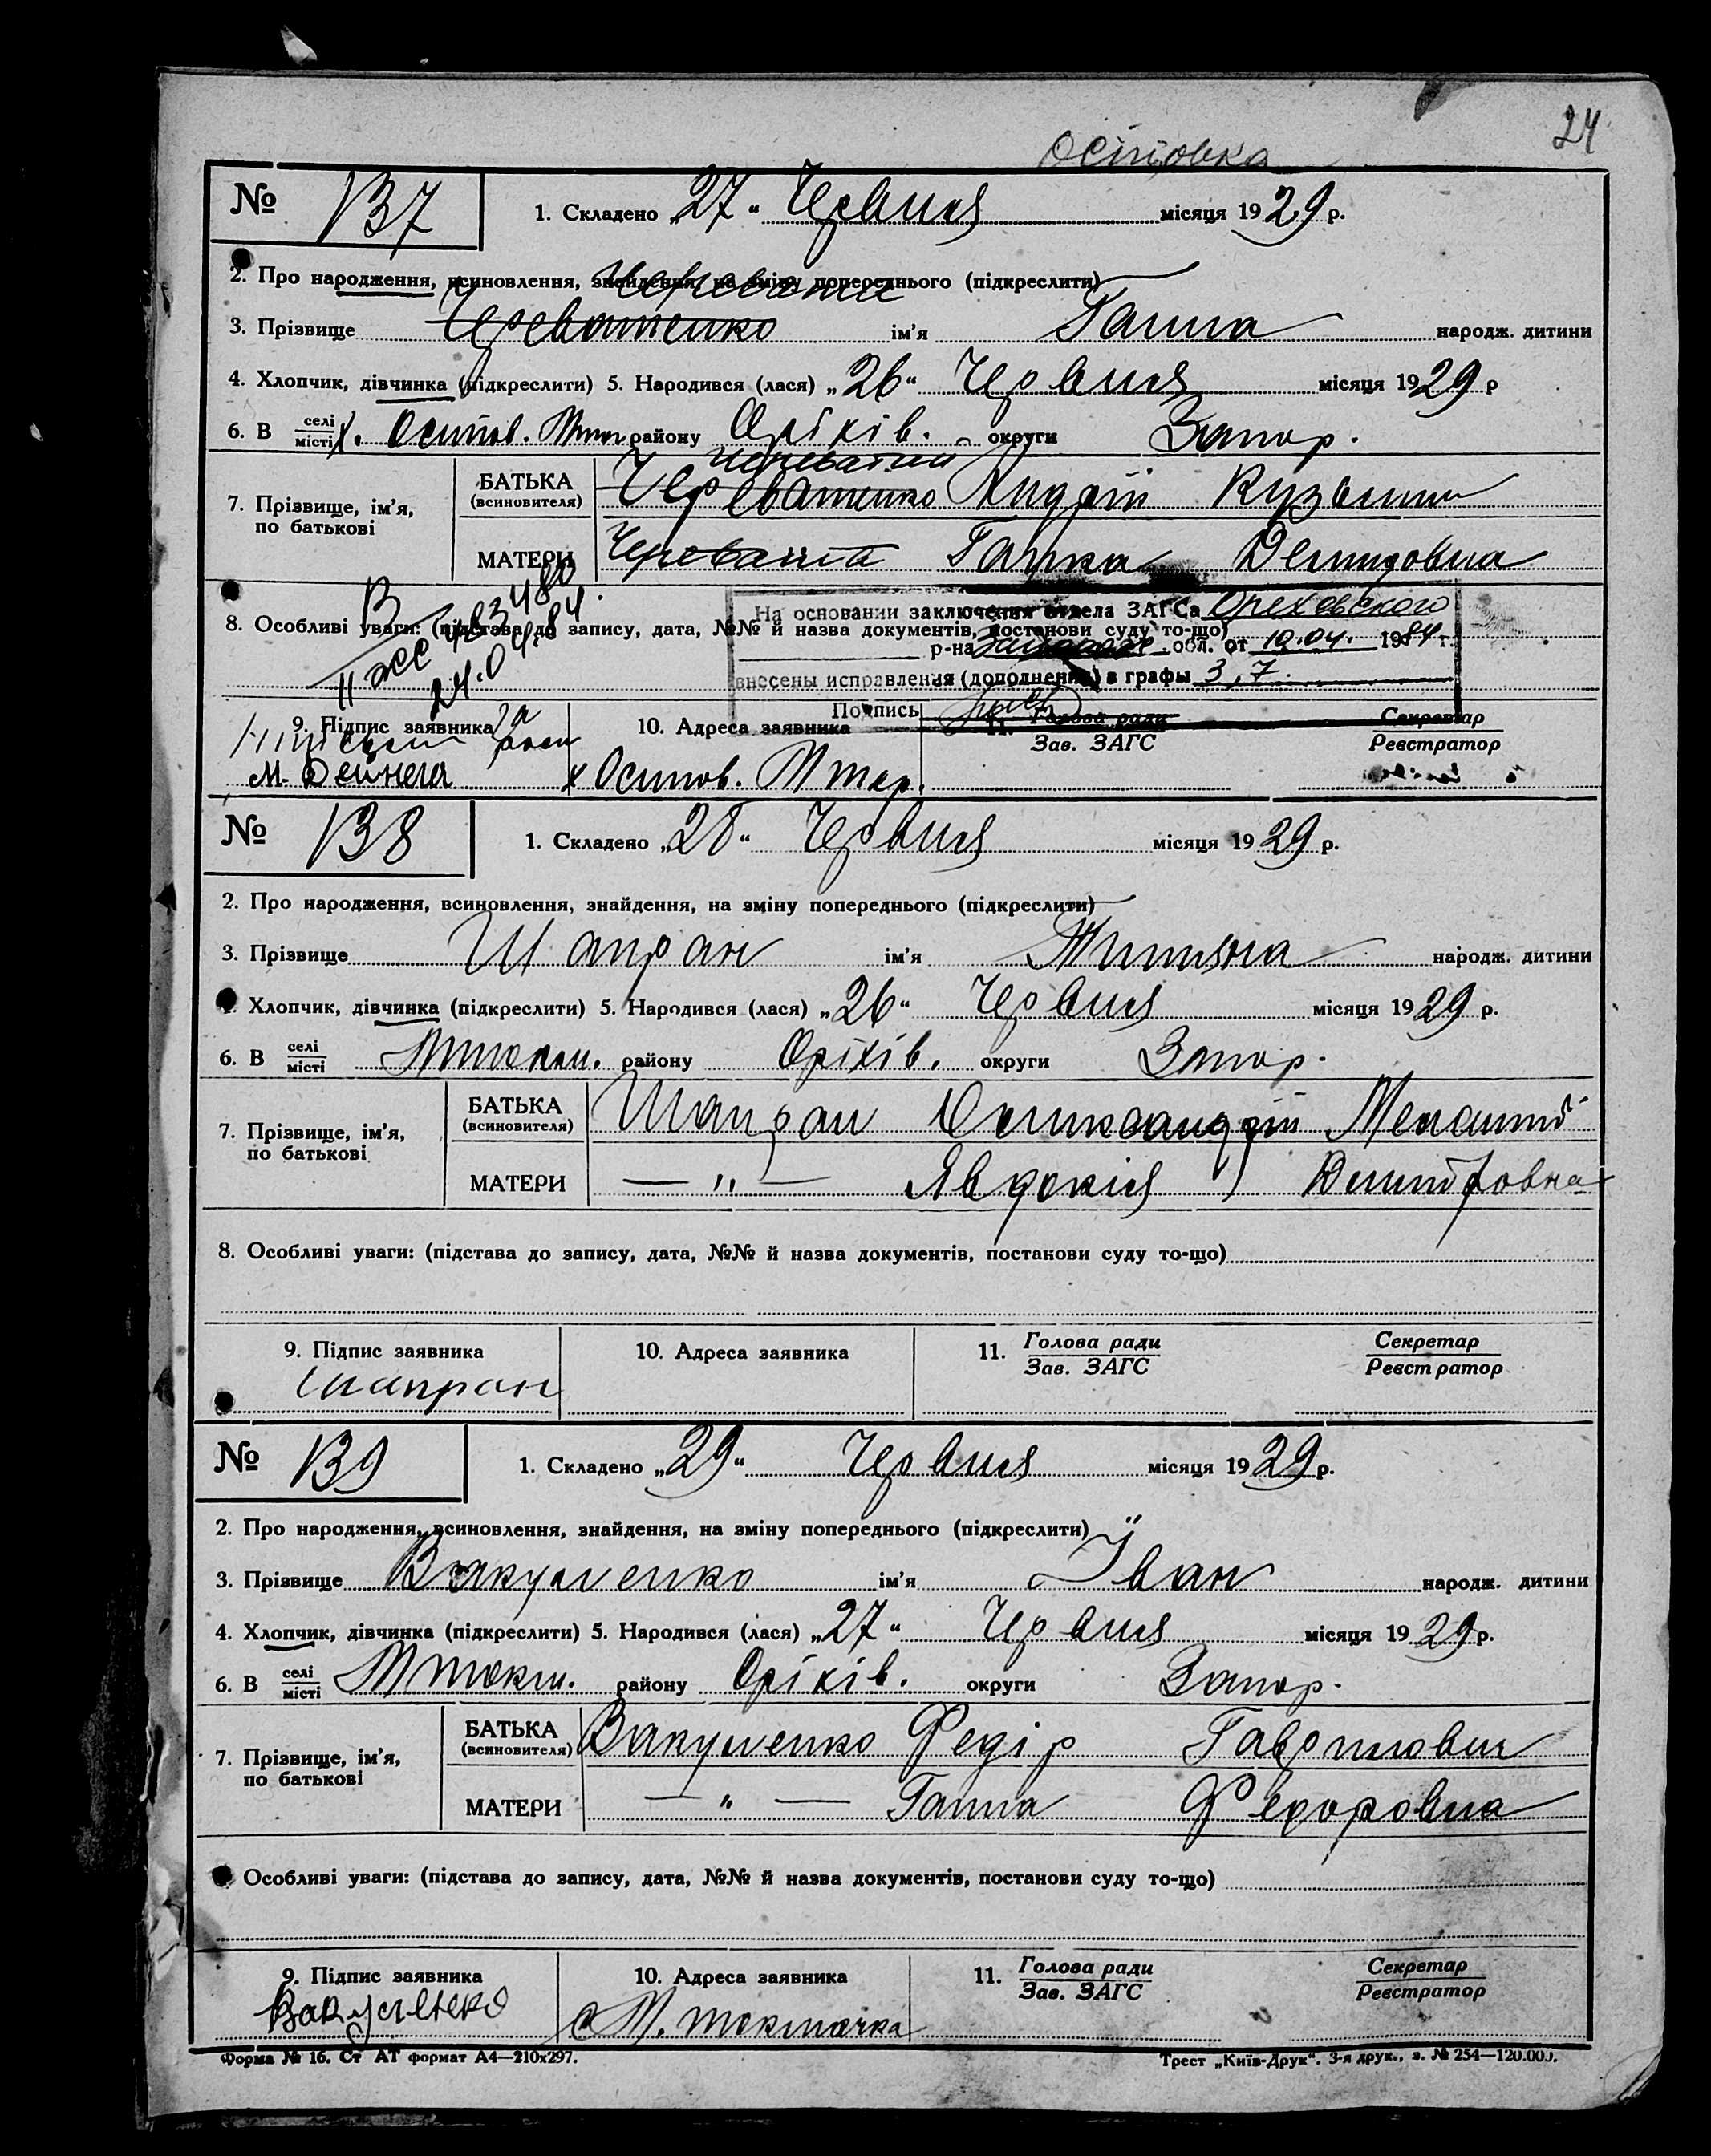 24
Осіповка
№ 137
1. Складено „27“ Червня місяця 1929 р.
2. Про народження, всиновлення, знайдення, на зміну попереднього (підкреслити)
3. Прізвище Череватенко ім'я Ганна народж. дитини
4. Хлопчик, дівчинка (підкреслити) 5. Народився (лася) „26“ Червня місяця 1929 р
6. В селі/місті х. Осипов. району Оріхів. округи Запор.
Череватий
7. Прізвище, ім'я, по батькові
БАТЬКА (всиновителя) Череватенко Андрій Кузьмич
МАТЕРИ Череватий Ганна Демидовна
8. Особливі уваги: (підстава до запису, дата, №№ й назва документів, постанови суду то-що)
На основании заключения отдела ЗАГСа Ореховского
р-на обл. от 10.04. 1984 г.
внесены исправления (дополнения) в графы 3,7
Подпись
24.04.84
9. Підпис заявника 10. Адреса заявника 11. Голова ради/Зав. ЗАГС Секретар/Реєстратор
х Осипов.
№ 138
1. Складено „28“ Червня місяця 1929 р.
2. Про народження, всиновлення, знайдення, на зміну попереднього (підкреслити)
3. Прізвище Шапран ім'я народж. дитини
Хлопчик, дівчинка (підкреслити) 5. Народився (лася) „26“ Червня місяця 1929 р.
6. В селі/місті району Оріхів. округи Запор.
7. Прізвище, ім'я, по батькові
БАТЬКА (всиновителя) Шапран
МАТЕРИ — „ — Явдокія
8. Особливі уваги: (підстава до запису, дата, №№ й назва документів, постанови суду то-що)
9. Підпис заявника 10. Адреса заявника 11. Голова ради/Зав. ЗАГС Секретар/Реєстратор
Шапран
№ 139
1. Складено „29“ Червня місяця 1929 р.
2. Про народження, всиновлення, знайдення, на зміну попереднього (підкреслити)
3. Прізвище Вакуленко ім'я Іван народж. дитини
4. Хлопчик, дівчинка (підкреслити) 5. Народився (лася) „27“ Червня місяця 1929 р.
6. В селі/місті району Оріхів. округи Запор.
7. Прізвище, ім'я, по батькові
БАТЬКА (всиновителя) Вакуленко Федір Гаврилович
МАТЕРИ — „ — Ганна Федоровна
Особливі уваги: (підстава до запису, дата, №№ й назва документів, постанови суду то-що)
9. Підпис заявника 10. Адреса заявника 11. Голова ради/Зав. ЗАГС Секретар/Реєстратор
Вакуленко с М. Токмачка
Форма № 16. Ст АТ формат А4—210х297. Трест „Київ-Друк“. 3-я друк., з. № 254—120.000.